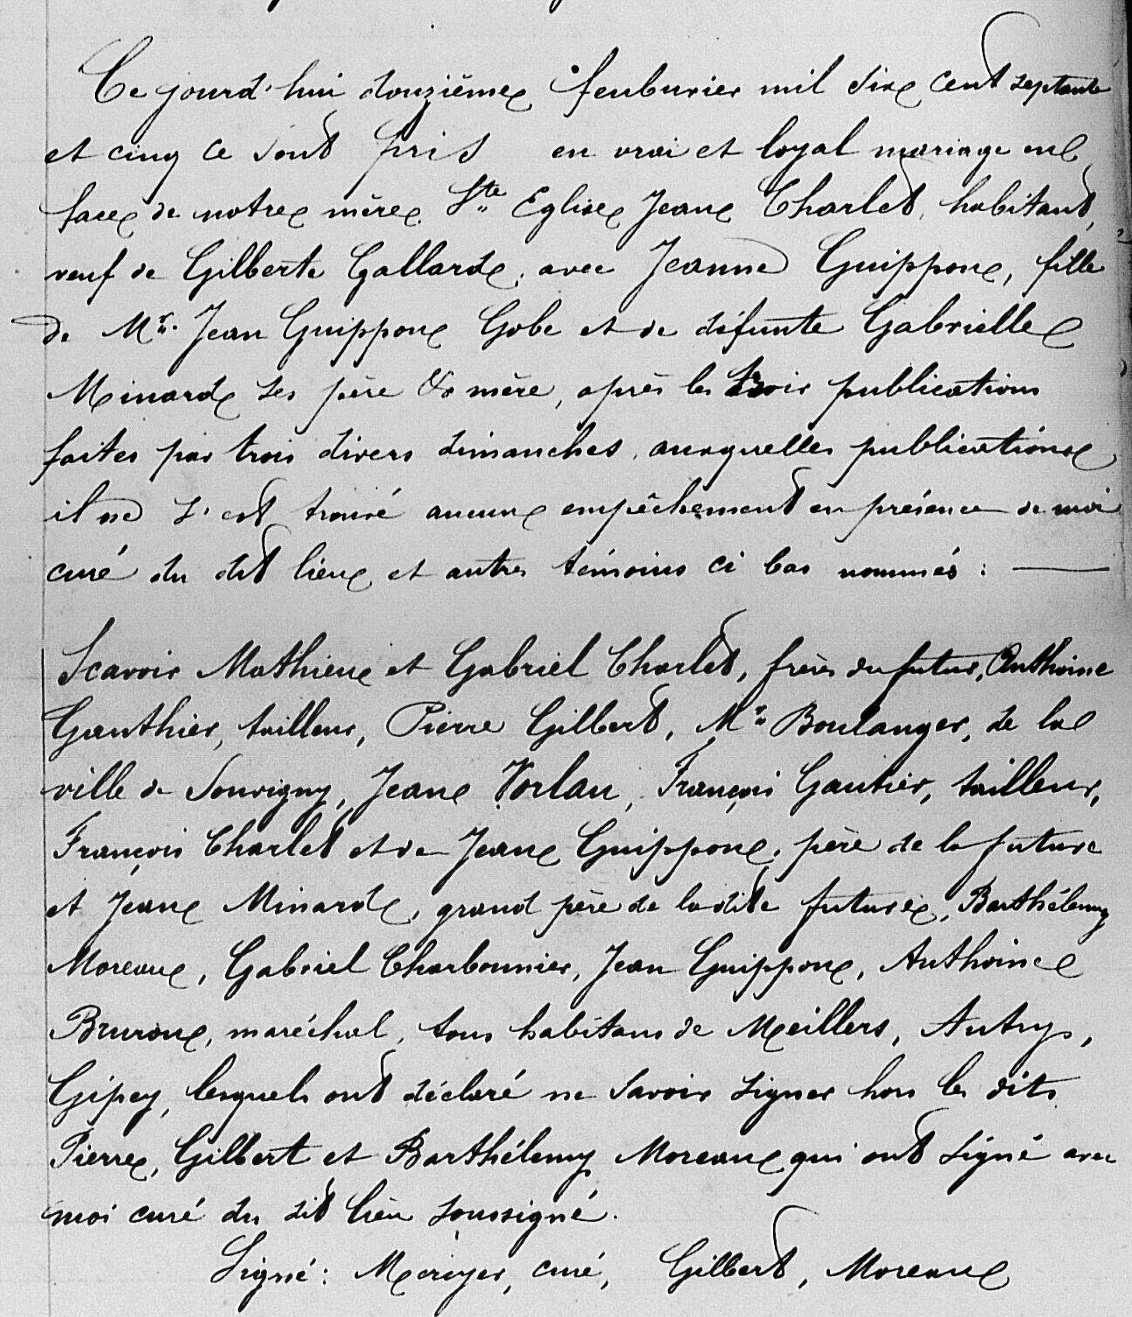 Ce jourd'hui douzième feuburier mil six cent septante
et cinq ce sont pris en vrai et loyal mariage en
face de notre mère Ste Eglise Jean Charlet, habitant,
veuf de Gilberte Gallard, avec Jeanne Guippon, fille
de Mr. Jean Guippon Gobe et de défunte Gabrielle
Minard ses père & mère, après les trois publications
faites par trois divers dimanches, auxquelles publications
il ne s'est trouvé aucun empêchement en présence de moi
curé du dit lieu et autres témoins ci bas nommés :
Scavoir Mathieu et Gabriel Charlet, frères du futur, Anthoine
Gauthier, tailleur, Pierre Gilbert, Mr Boulanger, de la
ville de Souvigny, Jean Vorlau, François Gautier, tailleur,
François Charlet et de Jean Guippon, père de la future
et Jean Minard, grand père de la dite future, Barthélemy
Moreau, Gabriel Charbonnier, Jean Guippon, Anthoine
Bruron, maréchal, tous habitans de Meillers, Autry,
Gipcy, lesquels ont déclaré ne savoir signer hors les dits
Pierre, Gilbert et Barthélemy Moreau qui ont signé avec
moi curé du dit lieu soussigné.
Signé : curé, Gilbert, Moreau